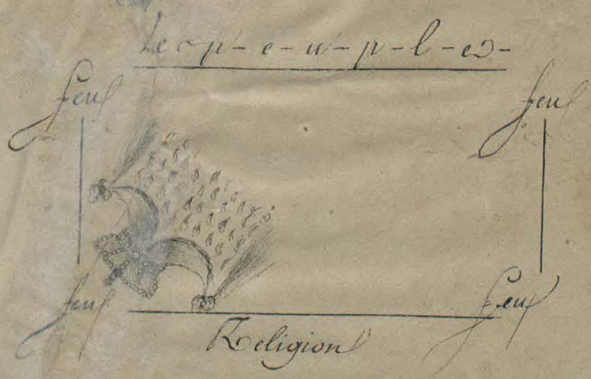 Le p-e-u-p-l-e-
feu feu
feu feu
Religion